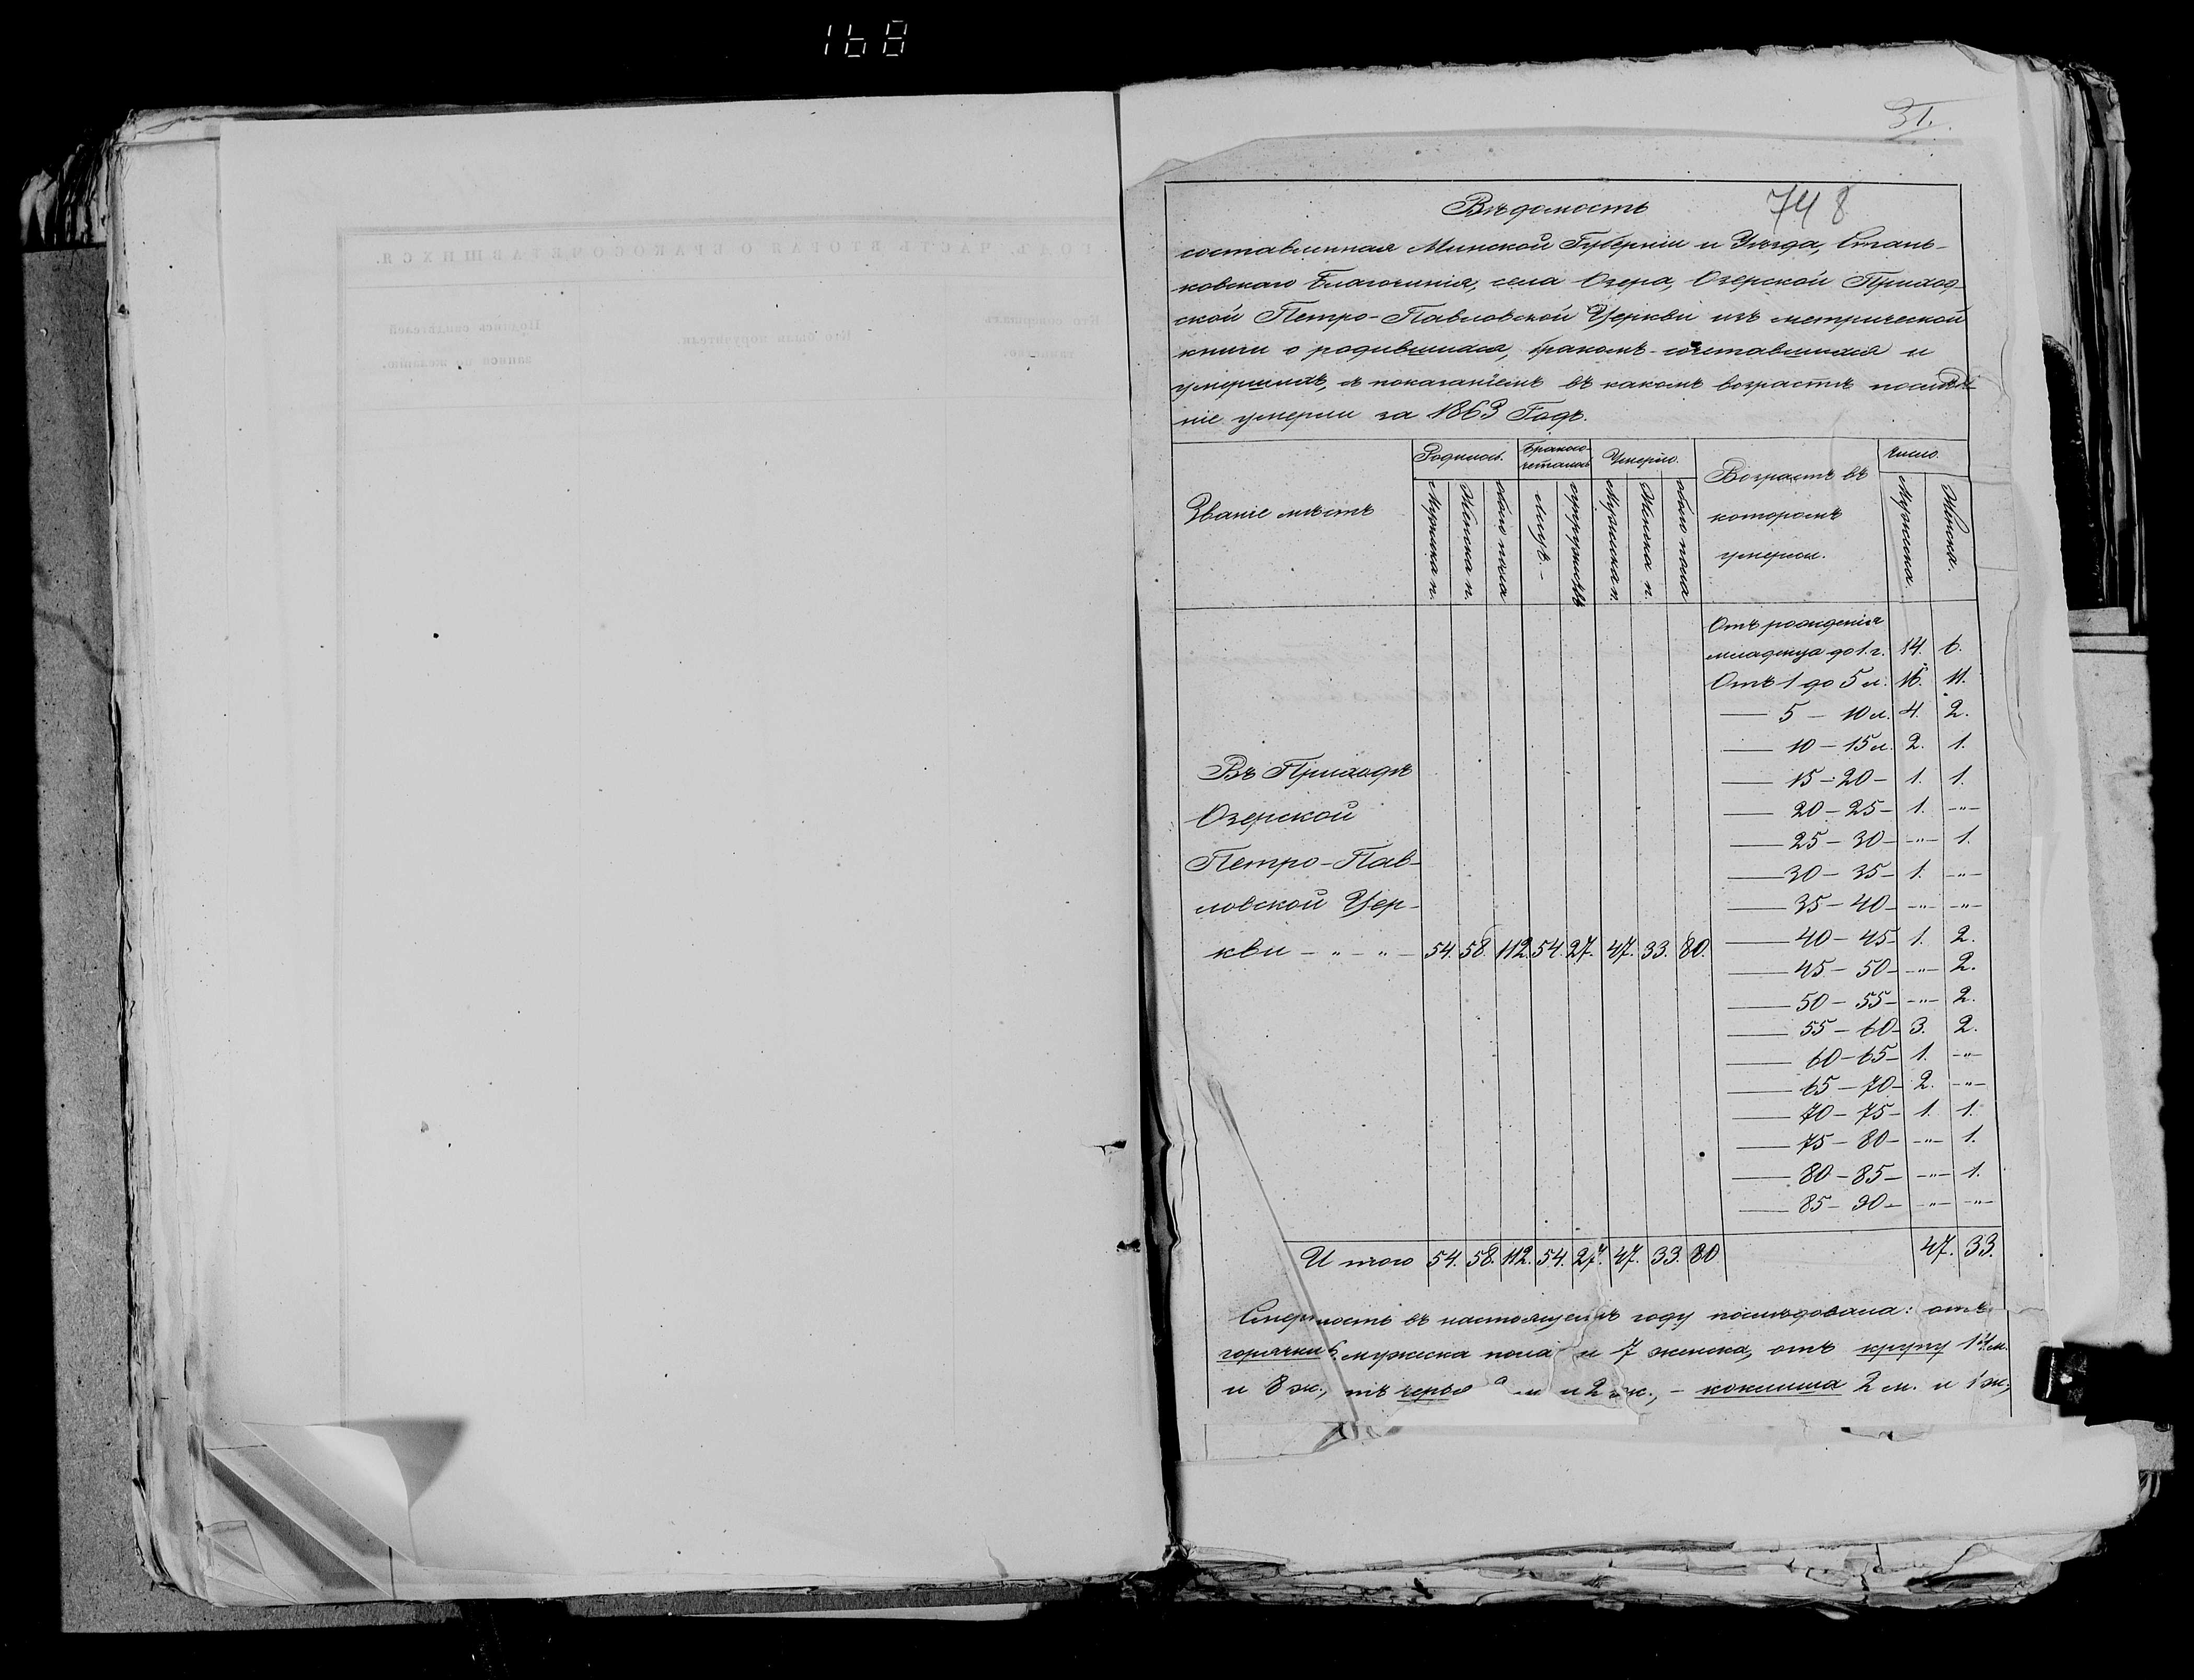 168
31.
748
Вѣдомость
составленная Минской Губерніи и Уѣзда, Стань-
ковскаго Благочинія, села Озера, Озерской Приход-
ской Петро-Павловской Церкви изъ метрической
книги о родившихся, бракомъ-сочетавшихся и
умершихъ, съ показаніемъ въ какомъ возрастѣ послѣд-
ніе умерли за 1863 Годъ.
Званіе мѣстъ
Родилось.
Бракосо-
четалось
Умерло.
Возрастъ въ
которомъ
умерли.
Число.
Мужска п.
Женска п.
обоего пола
лицъ.-
супружествъ
Мужска п.
Женска п.
обоего пола
Мужска.
Женска.
Отъ рожденія
младенца до 1. г. 14. 6.
Отъ 1 до 5 л. 16. 11.
— 5 — 10 л. 4. 2.
— 10 — 15 л. 2. 1.
— 15 — 20 — 1. 1.
— 20 — 25 — 1. -"-
— 25 — 30 — -"- 1.
— 30 — 35 — 1. -"-
— 35 — 40 — -"- -"-
— 40 — 45 1. 2.
— 45 — 50 — -"- 2.
— 50 — 55 — -"- 2.
— 55 — 60 3. 2.
— 60 — 65 — 1. -"-
— 65 — 70 — 2. -"-
— 70 — 75 — 1. 1.
— 75 — 80 — -"- 1.
— 80 — 85 — -"- 1.
— 85 — 90 — -"- -"-
Въ Приходѣ
Озерской
Петро-Пав-
ловской Цер-
кви - " - " - 54. 58. 112. 54. 27. 47. 33. 80.
Итого 54. 58. 112. 54. 27. 47. 33. 80 47. 33.
Смертность въ настоящемъ году послѣдовала: отъ
горячки 6. мужска пола и 7 женска, отъ крупу 14 м.
и 8 ж., и 2 ж., - коклюша 2 м. и 1 ж.,
ГОДЪ. ЧАСТЬ ВТОРАЯ О БРАКОСОЧЕТАВШИХСЯ.
Кто совершалъ
таинство.
Кто были поручители.
Подпись свидѣтелей
записи по желанію.